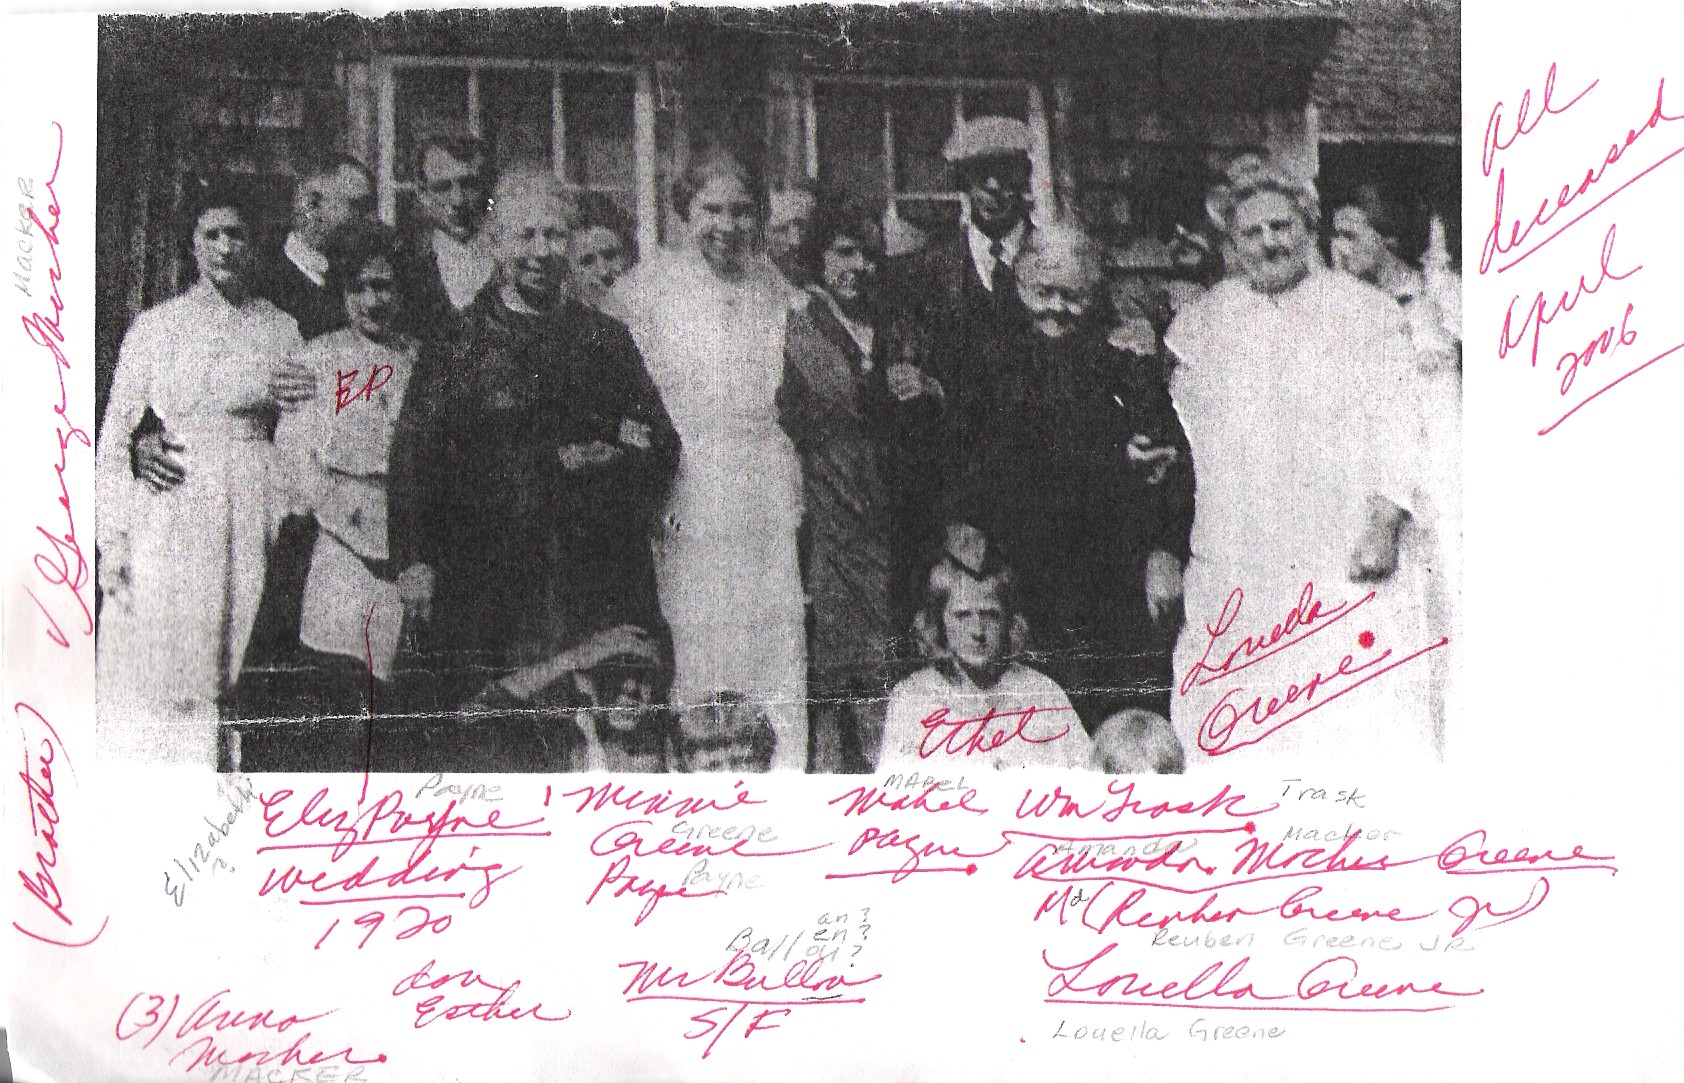 All
deceased
April
2006
MACKER
George Mosher
(Brother)
EP
Ethel
Loueda
Greene
Elizabeth
?
Payne
Eliz Payne
wedding
1920
Minnie
Greene
Greene
Payne
Payne
MABEL
Mabel
Payne
Wm Trask
Trask
Amanda
Macker
Amanda Mosher Greene
Md (Reuben Greene Jr)
Reuben Greene JR
Louella Greene
Louella Greene
an?
en?
Ball ou?
Mr Ballou
S/F
Esther
(3) Anna
Mosher
MACKER